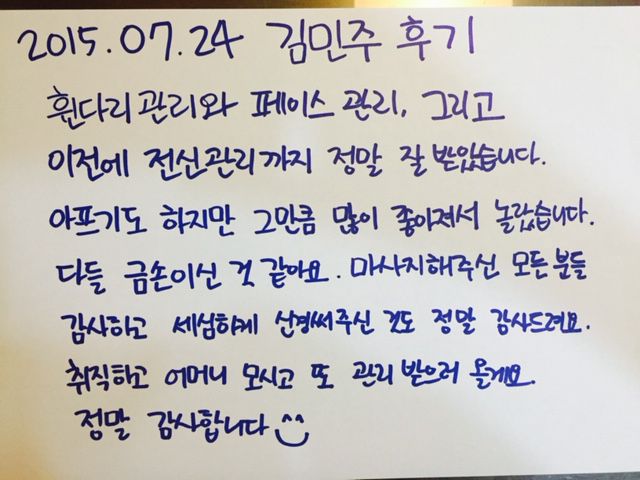 2015.07.24 김민주 후기
휜다리관리와 페이스 관리, 그리고
이전에 전신관리까지 정말 잘 받았습니다.
아프기도 하지만 그만큼 많이 좋아져서 놀랐습니다.
다들 금손이신 것 같아요. 마사지해주신 모든분들
감사하고 세심하게 신경써주신 것도 정말 감사드려요.
취직하고 어머니 모시고 또 관리 받으러 올게요.
정말 감사합니다 ^^